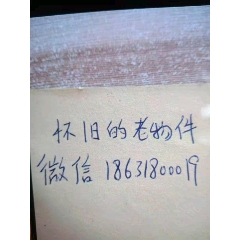 怀旧的老物件
微信 18631800019